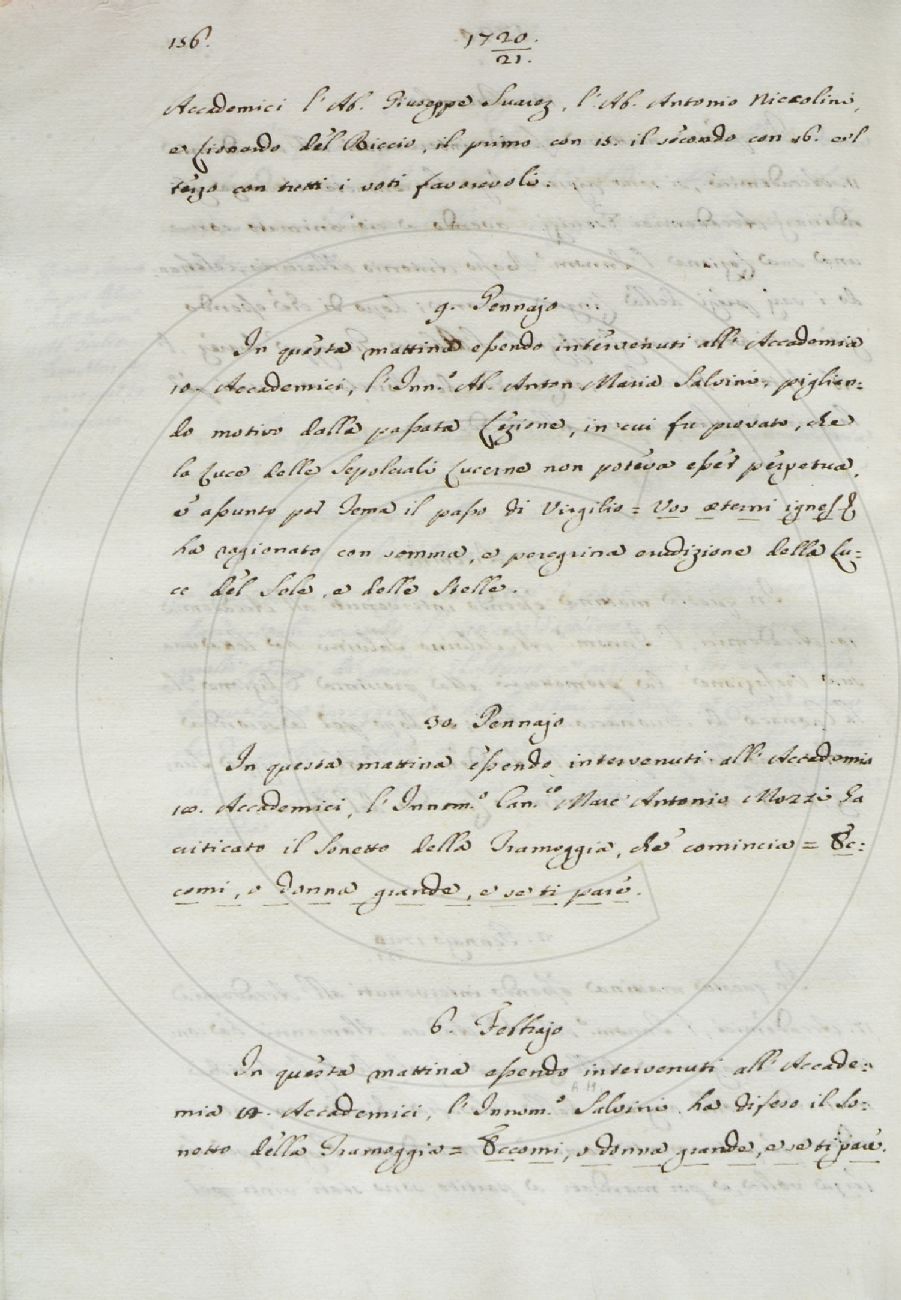 156.
1720.
21.
Accademici l'Ab. Giuseppe Suarez, l'Ab. Antonio Niccolini,
e Lionardo del Riccio, il primo con 15. il secondo con 16. e il
terzo con tutti i voti favorevoli.
9. Gennajo
In questa mattina essendo intervenuti all'Accademia
10. Accademici, l'Inn.º Ab. Anton Maria Salvini, piglian=
do motivo dalla passata Lezione, in cui fu provato, che
la Luce delle Sepolcrali Lucerne non poteva esser perpetua,
e assunto per Tema il passo di Virgilio = Vos æterni ignes
ha ragionato con somma, e peregrina erudizione della Lu=
ce del Sole, e delle Stelle.
30. Gennajo
In questa mattina essendo intervenuti all'Accademia
100. Accademici, l'Innom.º Can.co Marc'Antonio Mozzi ha
criticato il Sonetto della Tramoggia, che comincia = Ec=
comi, o donna grande, e se ti pare.
6. Febbrajo
In questa mattina essendo intervenuti all'Accade=
mia Accademici, l'Innom.º A M Salvini ha difeso il So=
netto della Tramoggia = Eccomi, o donna grande, e se ti pare.